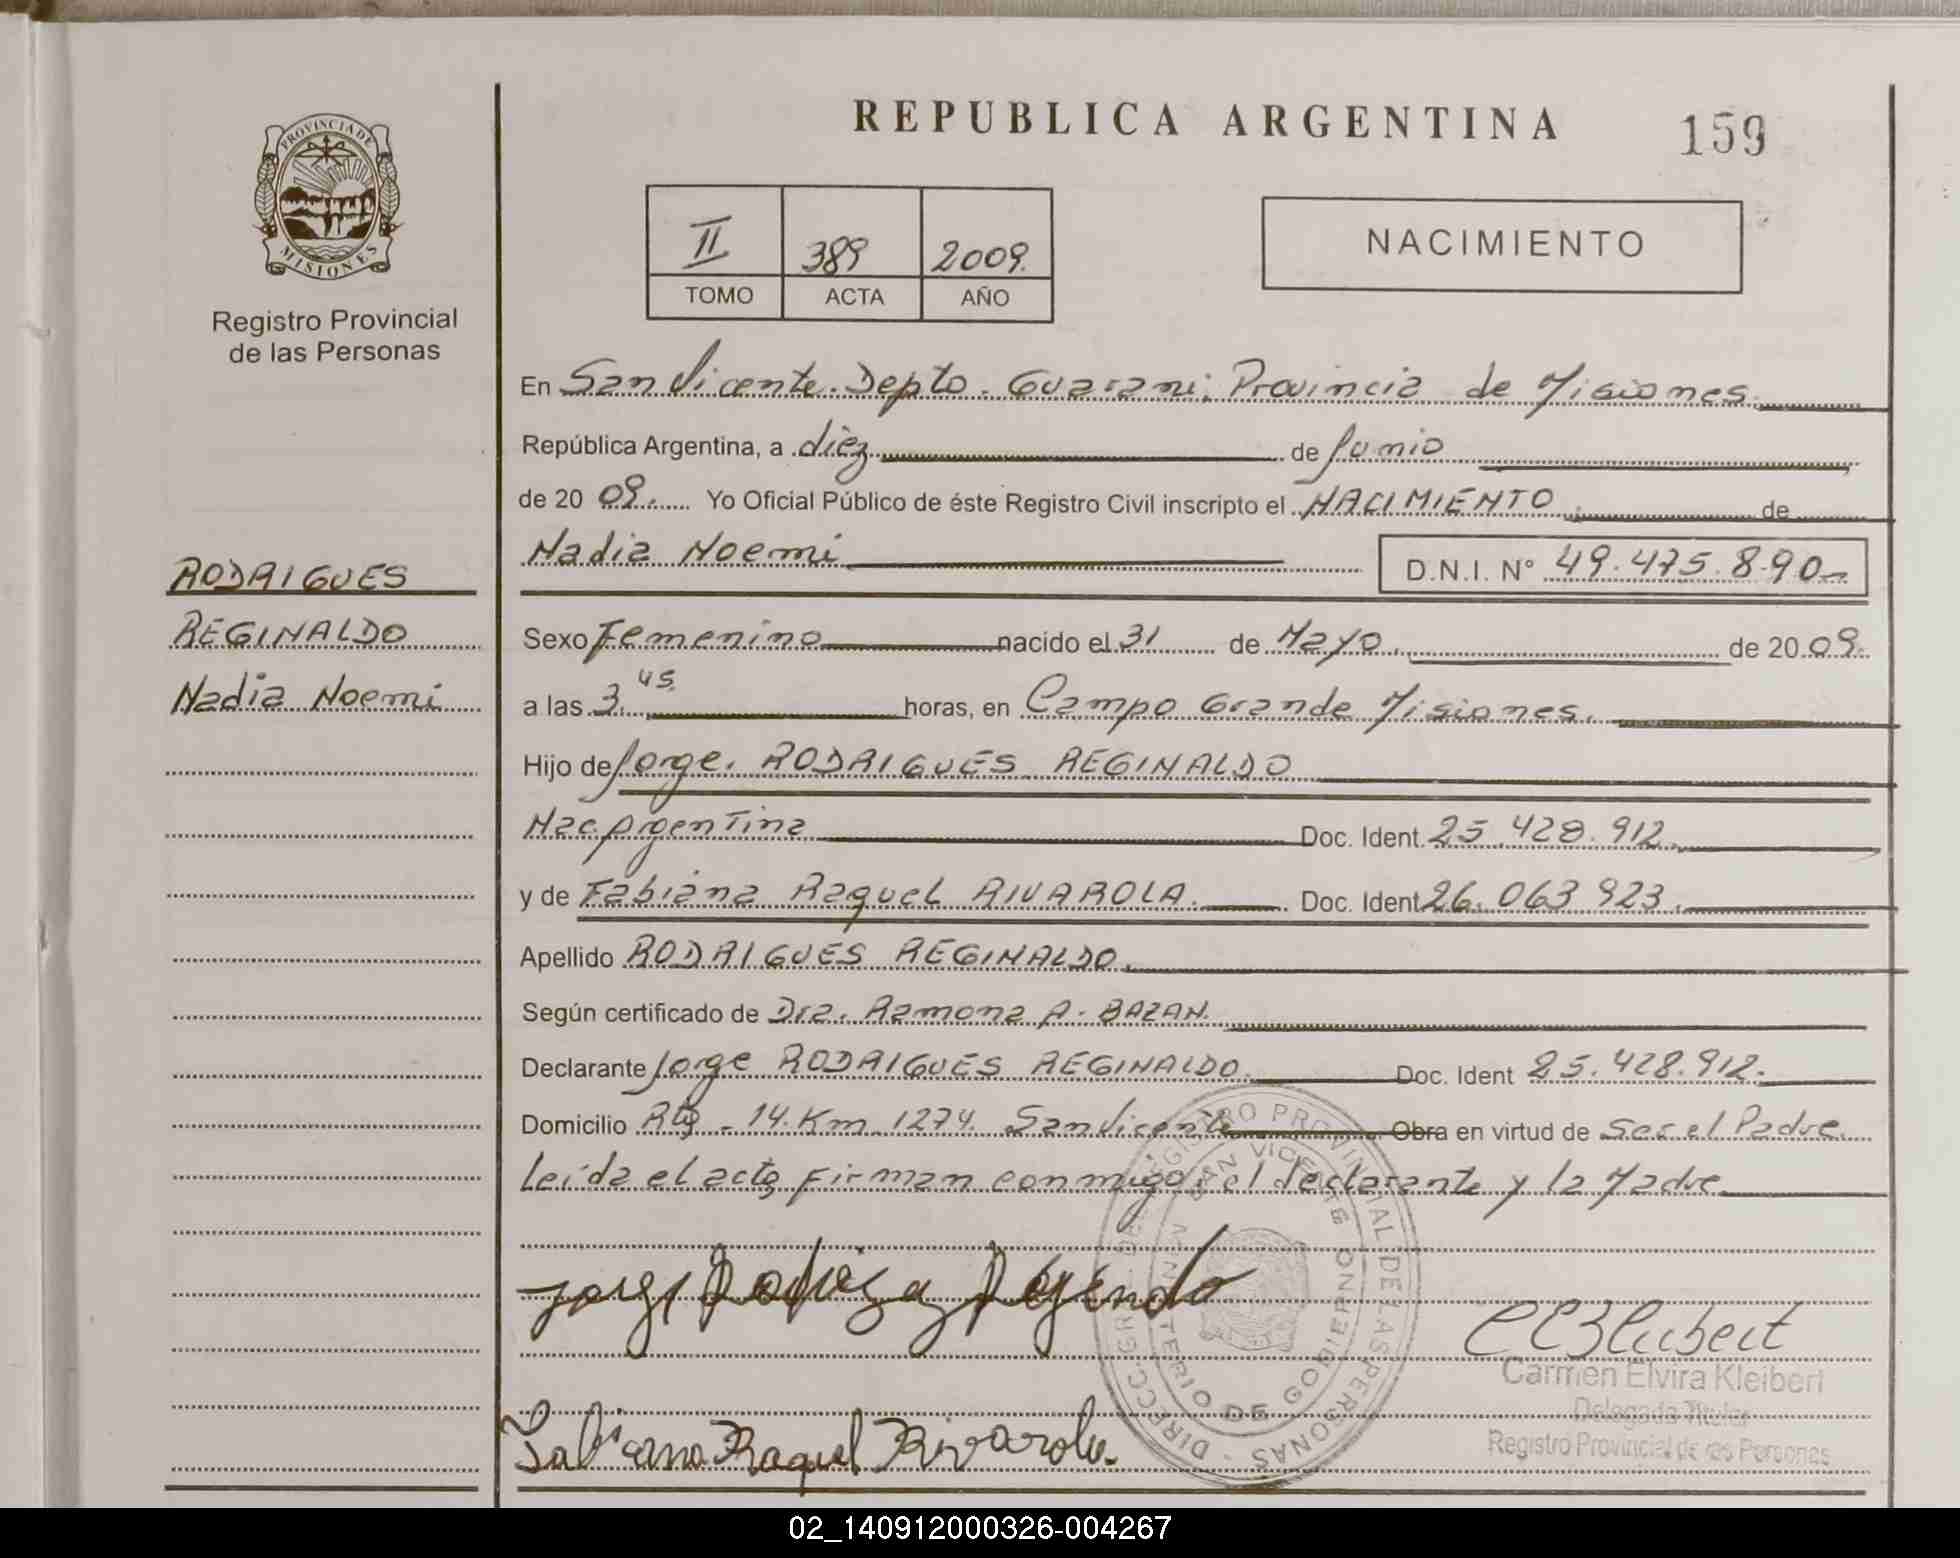 REPUBLICA ARGENTINA
159
PROVINCIA DE
MISIONES
Registro Provincial
de las Personas
II 389 2009.
TOMO ACTA AÑO
NACIMIENTO
En San Vicente. Depto. Guarani; Provincia de Misiones.
República Argentina, a diez de Junio
de 20 09. Yo Oficial Público de éste Registro Civil inscripto el NACIMIENTO. de
Nadia Noemi D.N.I. N° 49.475.890-
RODRIGUES
REGINALDO
Nadia Noemi
Sexo Femenino nacido el 31 de Mayo. de 20 09.
a las 3.45 horas, en Campo Grande Misiones.
Hijo de Jorge. RODRIGUES REGINALDO
Nac. Argentina Doc. Ident. 25.428.912.
y de Fabiana Raquel RIVAROLA. Doc. Ident 26.063 923.
Apellido RODRIGUES REGINALDO.
Según certificado de Dra. Ramona A. BAZAN.
Declarante Jorge RODRIGUES REGINALDO. Doc. Ident 25.428.912.
Domicilio Rta - 14. Km 1274. San Vicente Obra en virtud de Ser el Padre.
Leída el acta, firman conmigo, el declarante y la Madre
DIRECC. GRAL. DEL REGISTRO PROVINCIAL DE LAS PERSONAS
SAN VICENTE
MINISTERIO DE GOBIERNO
Fabiana Raquel Rivarola.
Carmen Elvira Kleibert
Delegada Titular
Registro Provincial de las Personas
02_140912000326-004267